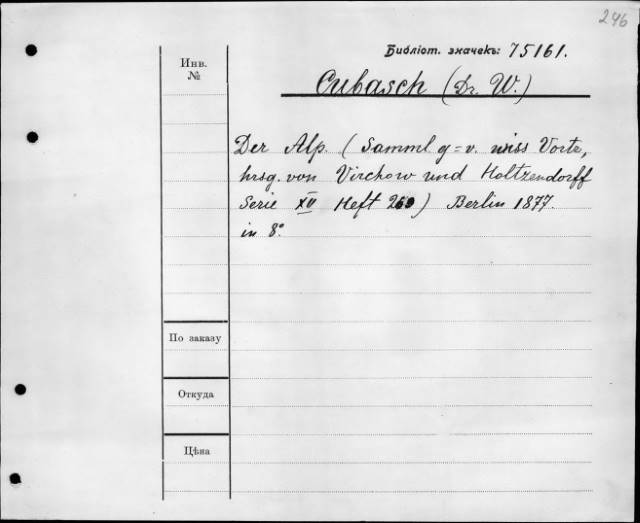 246
Библіот. значекъ: 75161.
Инв.
№
Cubasch (Dr. W.)
Der Alp. (Samml g=v. wiss Vortr,
hrsg. von Virchow und Holtzendorff
Serie XII Heft 269) Berlin 1877.
in 8º
По заказу
Откуда
Цѣна